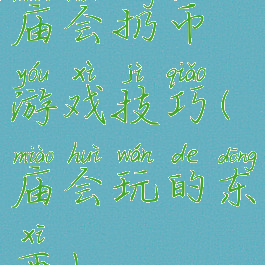 庙会扔币
yóu xì jì qiǎo
游戏技巧(
miào huì wán de dōng
庙会玩的东
xī
西)